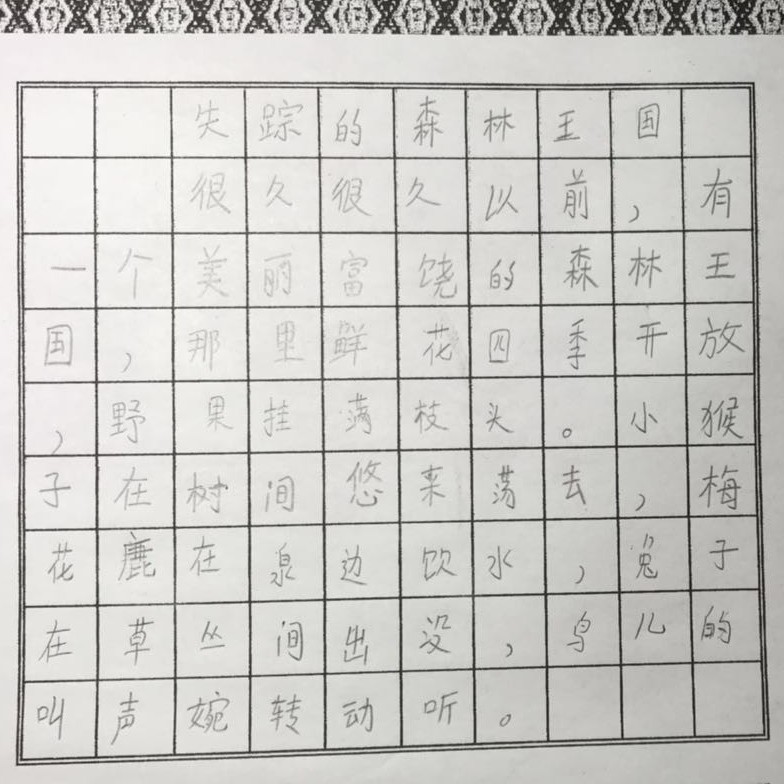 失踪的森林王国
很久很久以前，有
一个美丽富饶的森林王
国，那里鲜花四季开放
，野果挂满枝头。小猴
子在树间悠来荡去，梅
花鹿在泉边饮水，兔子
在草丛间出没，鸟儿的
叫声婉转动听。